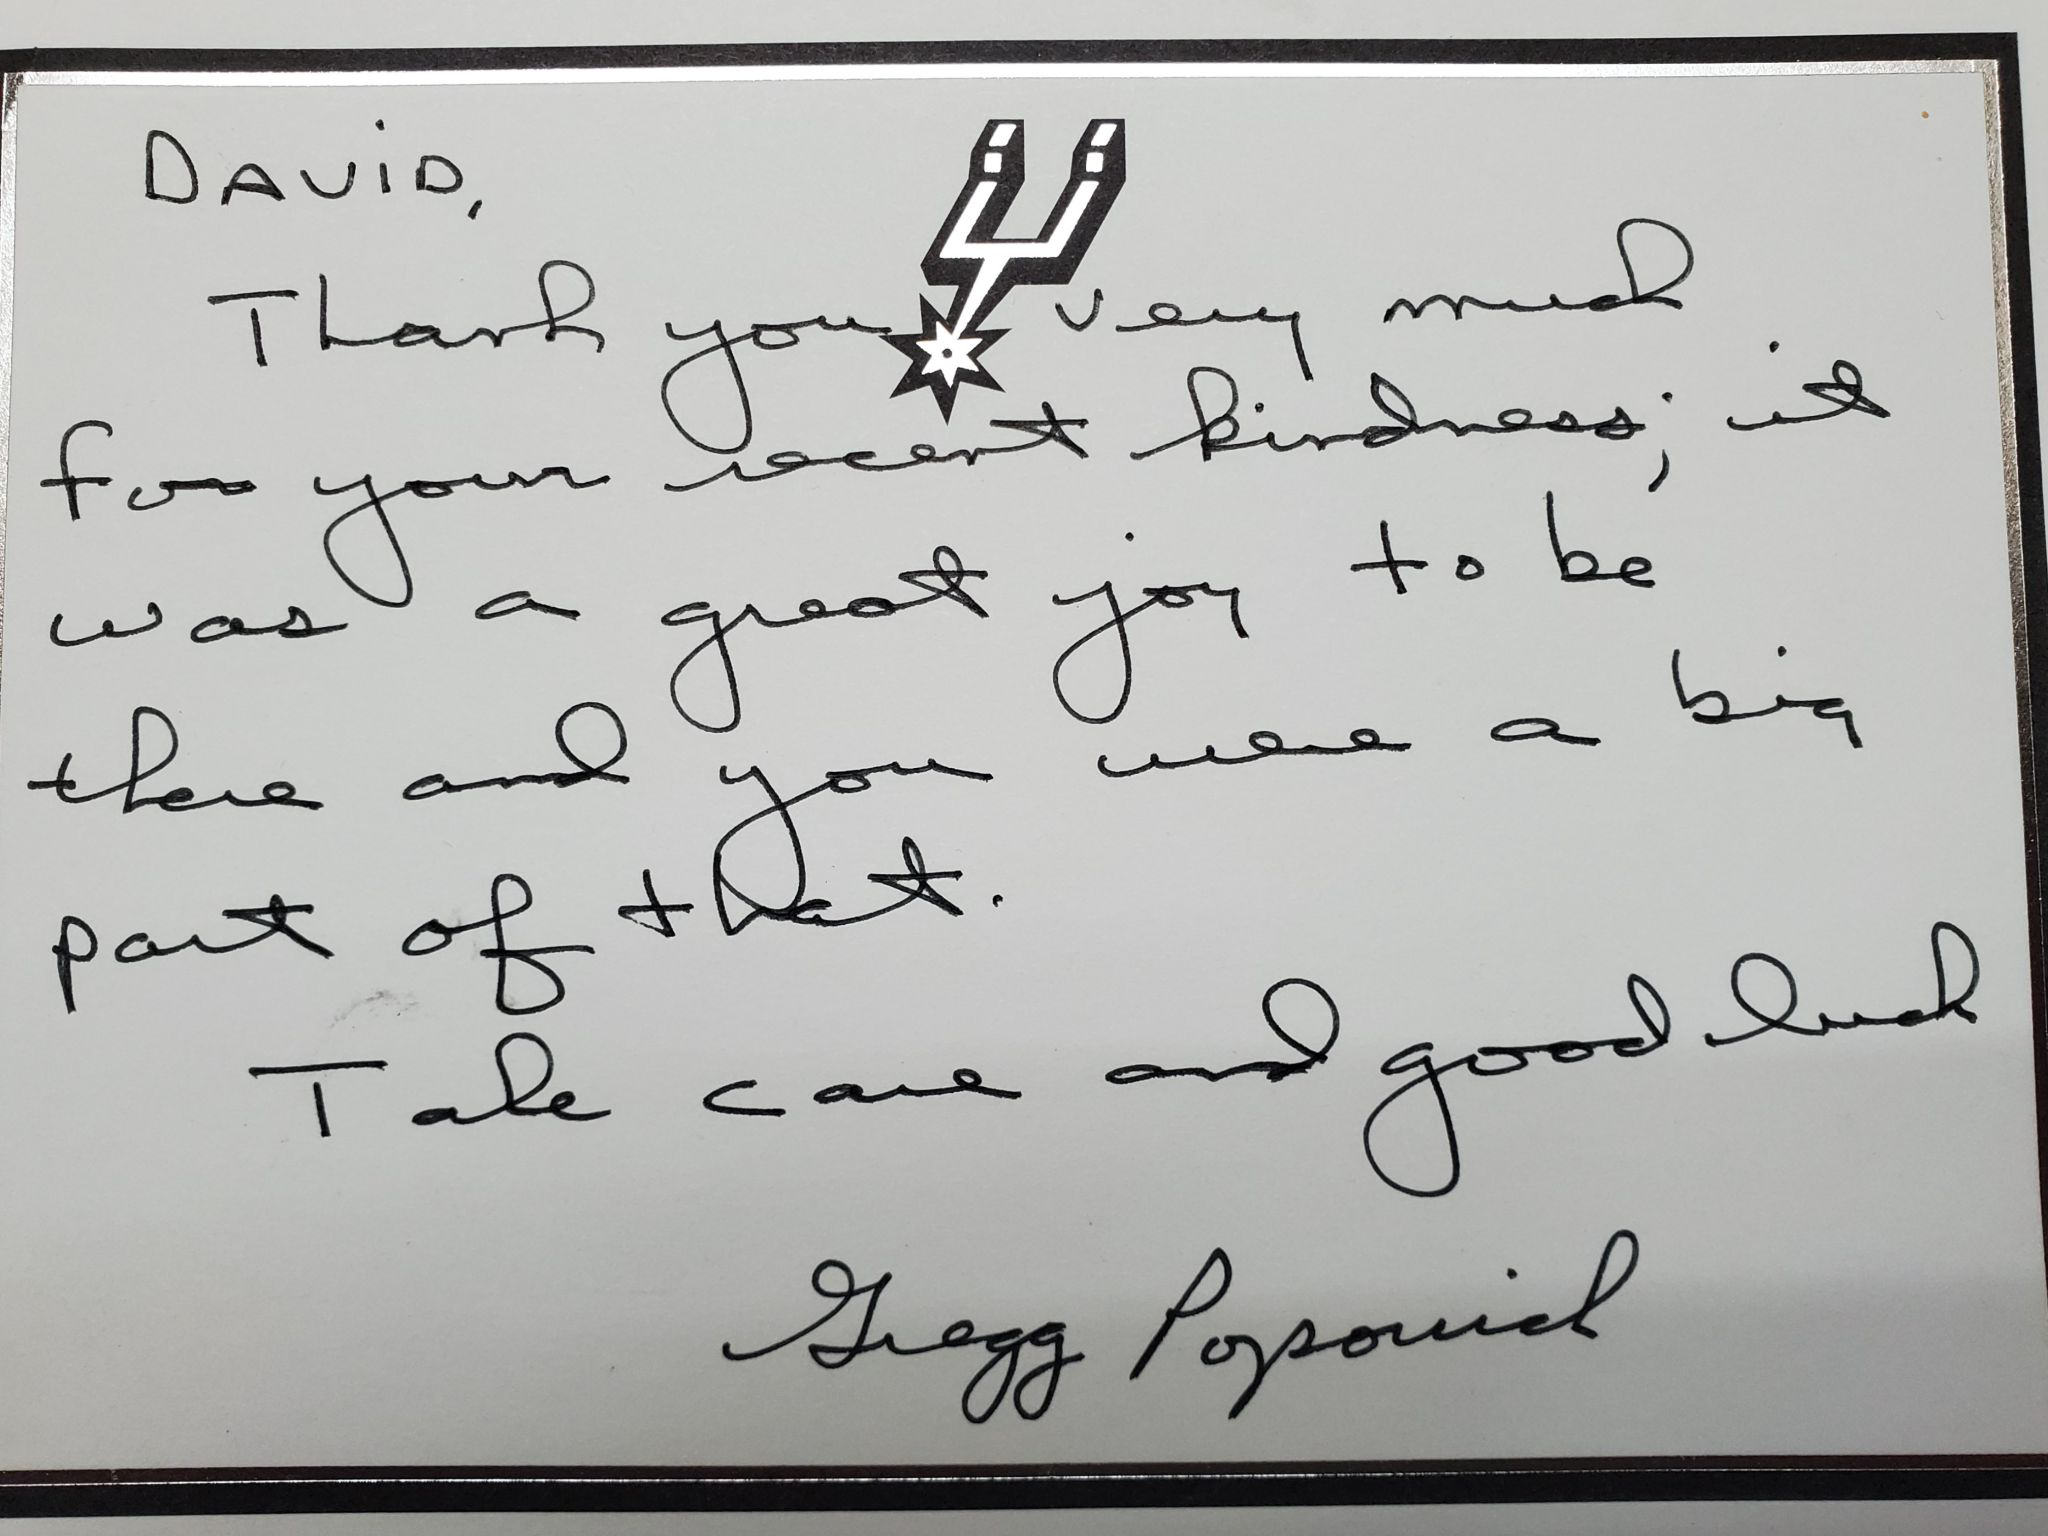 DAViD,
Thank you very much
for your recent kindness; it
was a great joy to be
there and you were a big
part of that.
Take care and good luck
Gregg Popovich